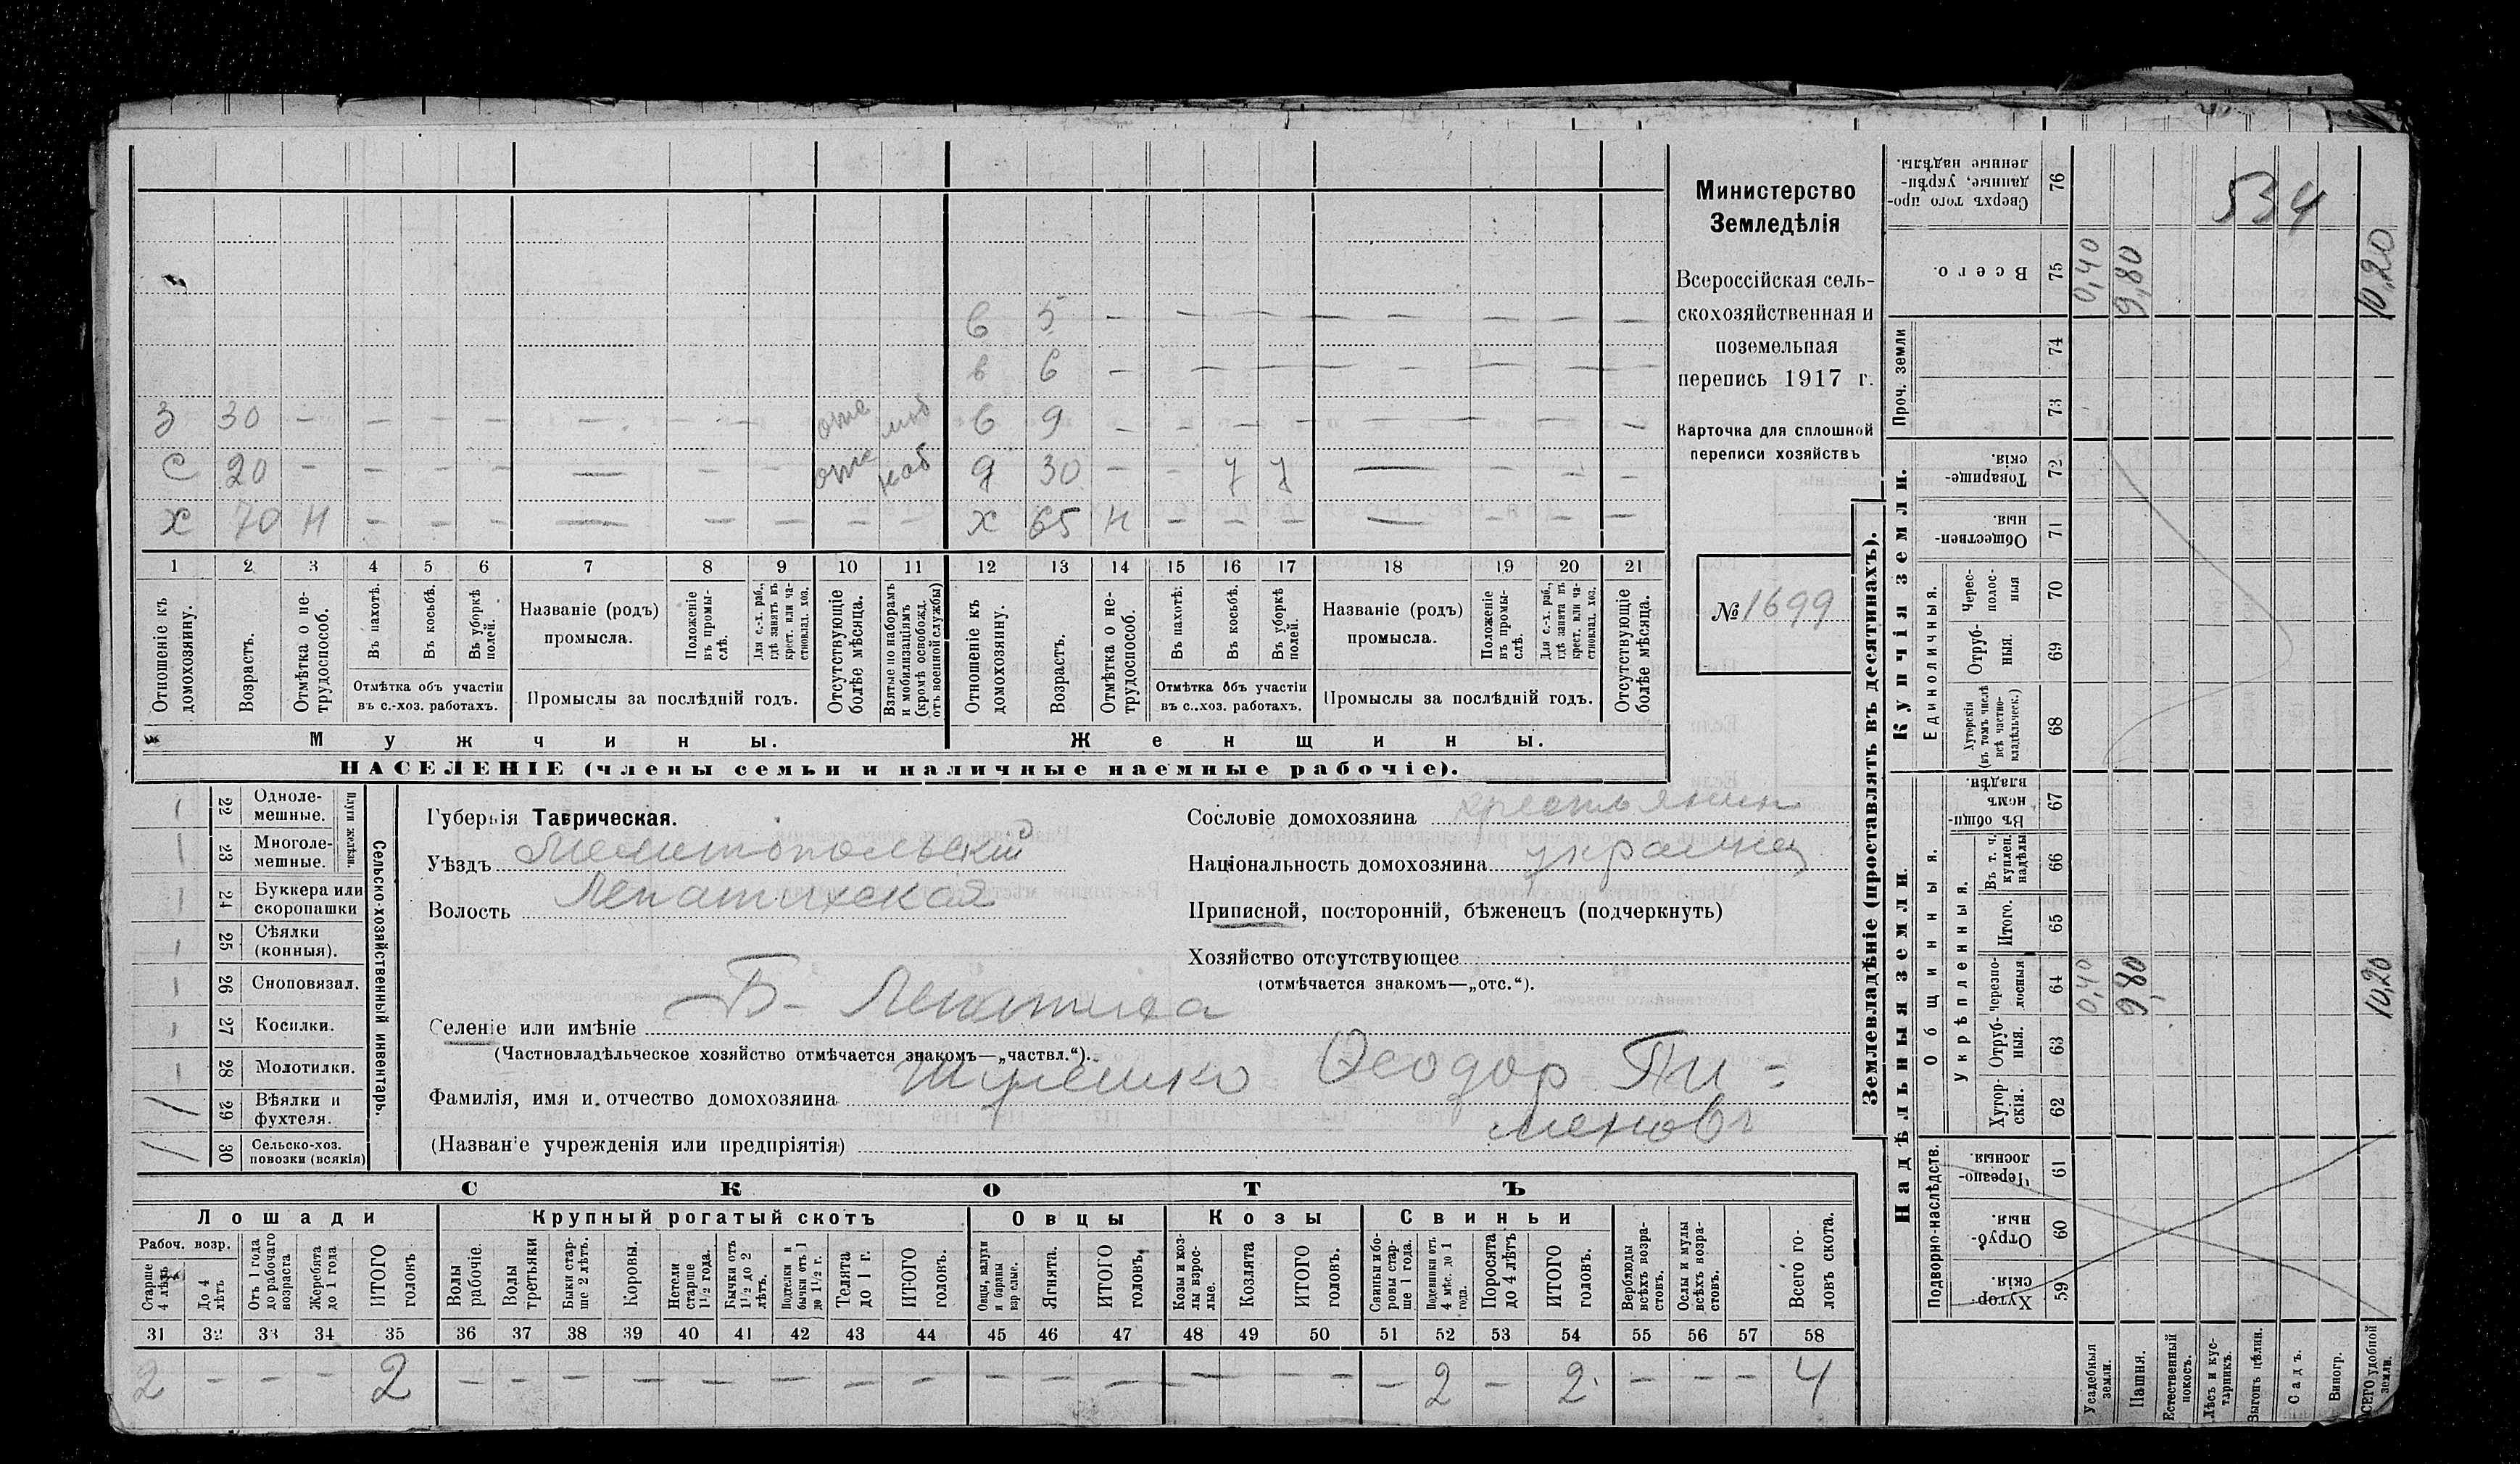 534
Министерство
Земледѣлія
Всероссійская сель-
скохозяйственная и
поземельная
перепись 1917 г.
Карточка для сплошной
переписи хозяйствъ
№ 1699
в 5 — — — — — — — —
в 6 — — — — — — — —
З 30 — — — — — — — отс моб в 9 — — — — — — — —
С 20 — — — — — — — отс моб д 30 — — У У — — — —
Х 70 Н — — — — — — — — Х 65 Н — — — — — — —
1 2 3 4 5 6 7 8 9 10 11 12 13 14 15 16 17 18 19 20 21
Отношеніе къ домохозяину.
Возрастъ.
Отмѣтка о не-трудоспособ.
Въ пахотѣ.
Въ косьбѣ.
Въ уборкѣ полей.
Отмѣтка объ участіи въ с.-хоз. работахъ.
Названіе (родъ) промысла.
Положеніе въ промы-слѣ.
Для с.-х. раб., гдѣ занятъ въ крест. или ча-стновлад. хоз.
Промыслы за послѣдній годъ.
Отсутствующіе болѣе мѣсяца.
Взятые по наборамъ и мобилизаціямъ (кромѣ освобожд. отъ военной службы)
Отношеніе къ домохозяину.
Возрастъ.
Отмѣтка о не-трудоспособ.
Въ пахотѣ.
Въ косьбѣ.
Въ уборкѣ полей.
Отмѣтка объ участіи въ с.-хоз. работахъ.
Названіе (родъ) промысла.
Положеніе въ промы-слѣ.
Для с.-х. раб., гдѣ занятъ въ крест. или ча-стновлад. хоз.
Промыслы за послѣдній годъ.
Отсутствующіе болѣе мѣсяца.
Мужчины. Женщины.
НАСЕЛЕНІЕ (члены семьи и наличные наемные рабочіе).
Сельско-хозяйственный инвентарь.
Плуги желѣзн.
1 22 Одноле-мешные.
1 23 Многоле-мешные.
1 24 Буккера или скоропашки
1 25 Сѣялки (конныя).
1 26 Сноповязал.
1 27 Косилки.
1 28 Молотилки.
1 29 Вѣялки и фухтеля.
1 30 Сельско-хоз. повозки (всякія)
Губернія Таврическая.
Уѣздъ Мелитопольскій
Волость Лепатихская
Селеніе или имѣніе Б- Лепатиха
(Частновладѣльческое хозяйство отмѣчается знакомъ—„частвл.“).
Фамилія, имя и отчество домохозяина Феодор Пи=
меновъ
(Названіе учрежденія или предпріятія)
Сословіе домохозяина крестьянин
Національность домохозяина украинец
Приписной, посторонній, бѣженецъ (подчеркнуть)
Хозяйство отсутствующее
(отмѣчается знакомъ—„отс.“).
СКОТЪ
Лошади Крупный рогатый скотъ Овцы Козы Свиньи
Рабоч. возр.
Старше 4 лѣтъ
До 4 лѣтъ
Отъ 1 года до рабочаго возраста
Жеребята до 1 года
ИТОГО головъ
Волы рабочіе.
Волы третьяки
Быки стар-ше 2 лѣтъ.
Коровы.
Нетели старше 1 1/2 года.
Бычки отъ 1 1/2 до 2 лѣтъ.
Подтелки и бычки отъ 1 до 1 1/2 г.
Телята до 1 г.
ИТОГО головъ.
Овцы, валухи и бараны взрослые.
Ягнята.
ИТОГО головъ.
Козы и коз-лы взрос-лые.
Козлята
ИТОГО головъ.
Свиньи и бо-ровы стар-ше 1 года.
Подсвинки отъ 4 мѣс. до 1 года.
Поросята до 4 лѣтъ
ИТОГО головъ.
Верблюды всѣхъ возра-стовъ.
Ослы и мулы всѣхъ возра-стовъ.
Всего го-ловъ скота.
31 32 33 34 35 36 37 38 39 40 41 42 43 44 45 46 47 48 49 50 51 52 53 54 55 56 57 58
2 — — — 2 — — — — — — — — — — — — — — — — 2 — 2 — — — 4
Землевладѣніе (проставлять въ десятинахъ).
Купчія земли.
Надѣльныя земли.
Проч. земли
Единоличныя.
Общинныя.
Укрѣпленныя.
Подворно-наслѣдств.
76 Сверхъ того про-данные, укрѣп-ленные надѣлы.
75 Всего. 0,40 9,80 10,20
74
73
72 Товарище-скія.
71 Обществен-ныя.
70 Черес-полос-ныя
69 Отруб-ныя.
68 Хуторскія (въ томъ числѣ всѣ частно-владѣльческ.)
67 Въ общи-номъ владѣн.
66 Въ т. ч. куплен. надѣлы
65 Итого.
64 Черезпо-лосныя 0,40 9,80 10,20
63 Отруб-ныя.
62 Хутор-скія.
61 Черезпо-лосныя.
60 Отруб-ныя.
59 Хутор-скія.
Усадебныя земли.
Пашня.
Естественный покосъ.
Лѣсъ и кус-тарникъ.
Выгонъ цѣлин.
Садъ.
Виногр.
ВСЕГО удобной земли.